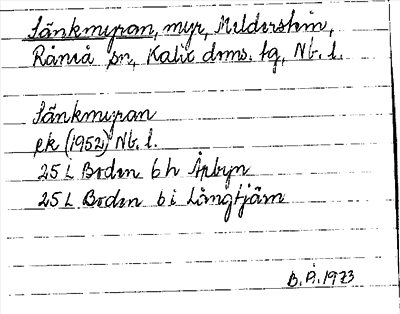 Länkmyran, myr, Melderstein,
Råneå sn, Kalix doms. tg, Nb. l.
Länkmyran
ek (1952) Nb. l.
25 L Boden 6 h Åpbyn
25 L Boden 6 i Långtjärn
B. P. 1973